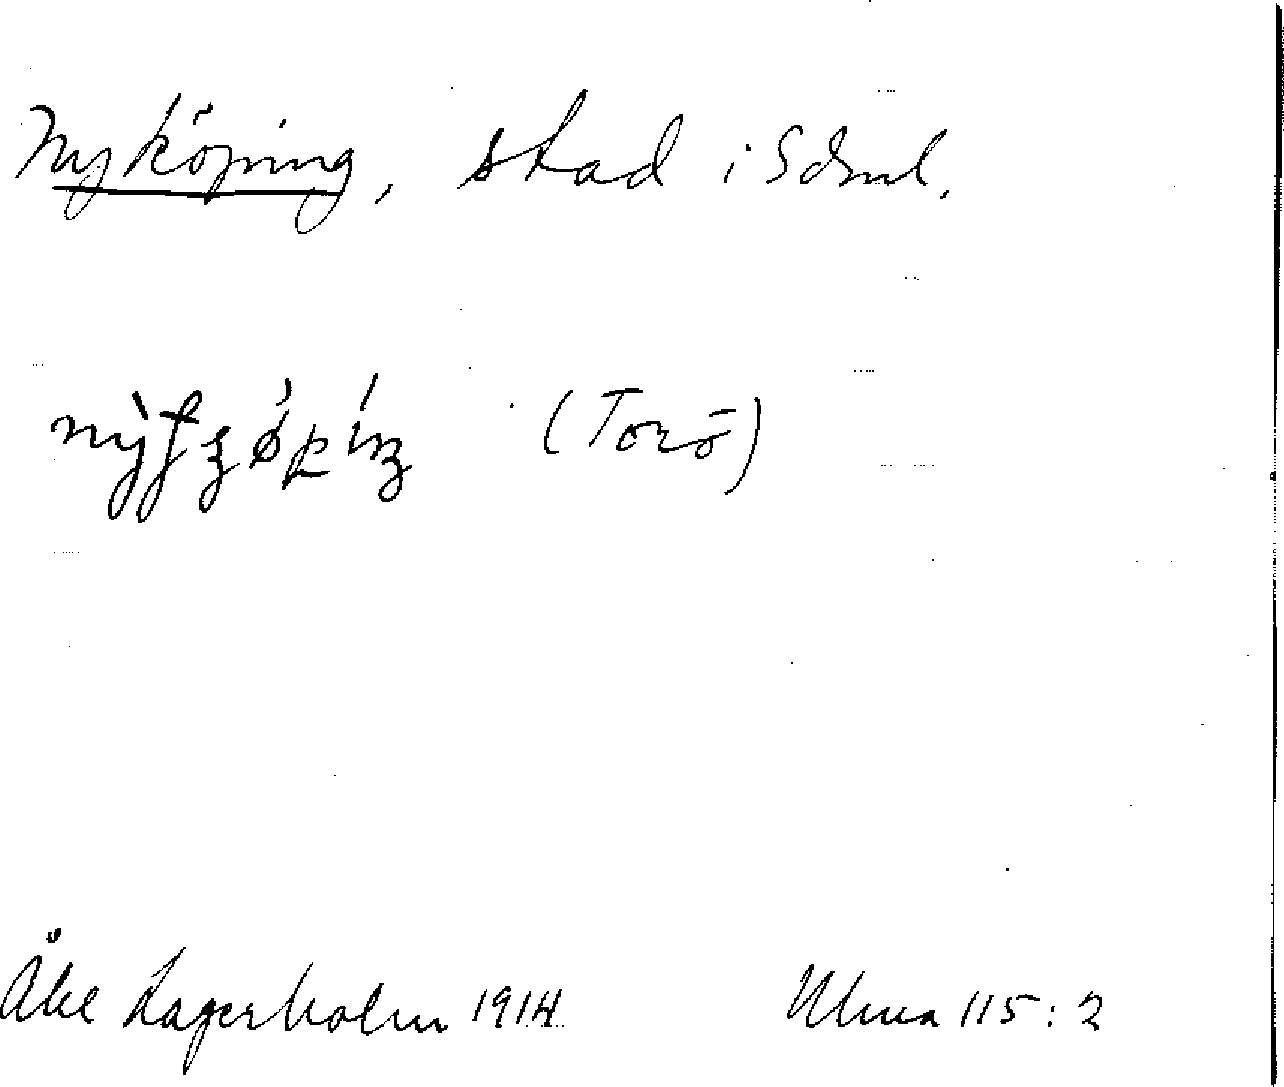 Nyköping, stad i Sdml.
(Torö)
Åke Lagerholm 1914 Ulma 115:2